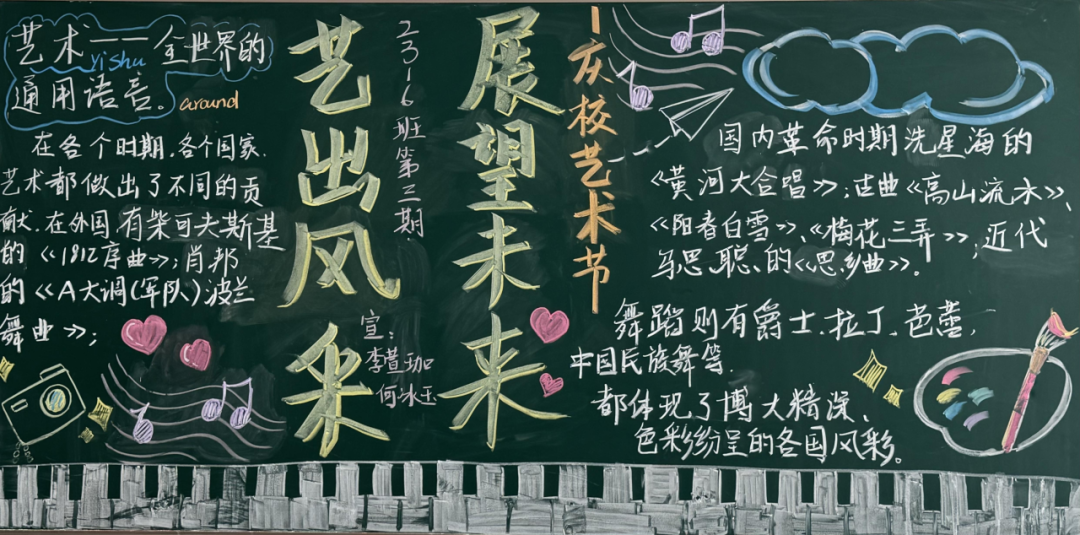 艺术——全世界的
yishu
通用语言。
around
在各个时期,各个国家.
艺术都做出了不同的贡
献.在外国,有柴可夫斯基
的《1812序曲》;肖邦
的《A大调(军队)波兰
舞曲》;
艺出风采
231-6班第三期
宣:
李萱珈
何冰玉
展望未来
庆校艺术节
国内革命时期冼星海的
《黄河大合唱》;古曲《高山流水》、
《阳春白雪》、《梅花三弄》;近代
马思聪的《思乡曲》。
舞蹈则有爵士.拉丁.芭蕾,
中国民族舞等.
都体现了博大精深、
色彩纷呈的各国风彩。